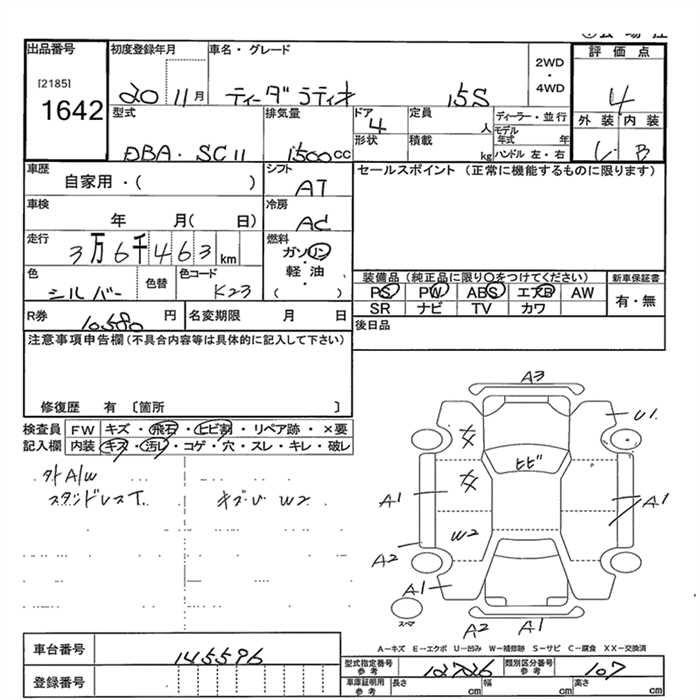 出品番号
[2185]
1642
初度登録年月
20 11月
車名・グレード
ティーダ ラティオ 15S
2WD
・
4WD
評価点
4
外装 内装
B
型式
DBA・SC11
排気量
1500cc
ドア
4
形状
定員
人
積載
kg
ディーラー・並行
モデル年式 年
ハンドル 左・右
車歴
自家用・( )
シフト
AT
セールスポイント (正常に機能するものに限ります)
車検
年 月( 日)
冷房
AC
走行
3万6千463km
燃料
ガソリン
・
軽油
( )
色
シルバー
色替
色コード
K23
装備品(純正品に限り○をつけてください)
新車保証書
PS PW ABS エアB AW
SR ナビ TV カワ
有・無
R券
10,580円
名変期限 月 日
後日品
注意事項申告欄(不具合内容等は具体的に記入して下さい)
修復歴 有 〔箇所 〕
検査員 FW キズ・飛石・ヒビ割・リペア跡・×要
記入欄 内装 キズ・汚レ・コゲ・穴・スレ・キレ・破レ
外A/W
スタッドレスT. キズ・U W2
A3
U1
ヒビ
A1
A1
W2
A2
A1
スペア
A2
A1
A-キズ E-エクボ U-凹み W-補修跡 S-サビ C-腐食 XX-交換済
車台番号
145596
登録番号
型式指定番号
参考
12726
類別区分番号
参考
107
車庫証明用
参考
長さ cm
幅 cm
高さ cm